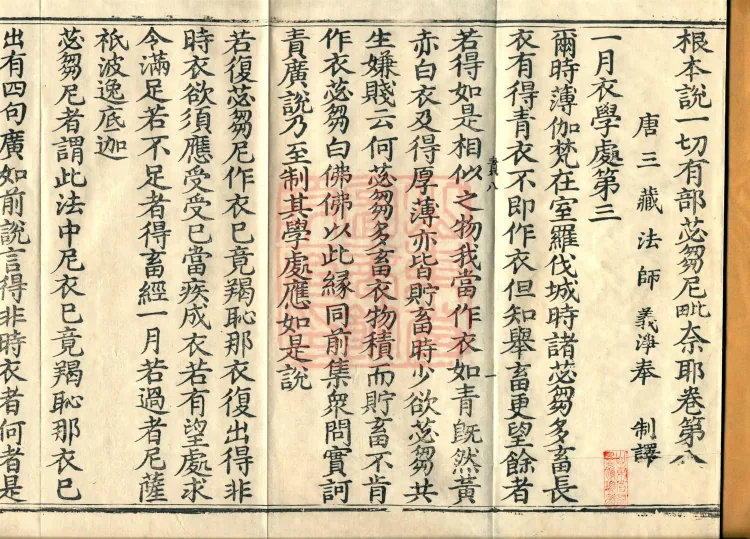 根本說一切有部苾芻尼毗奈耶卷第八
唐三藏法師義淨奉 制譯
一月衣學處第三
爾時薄伽梵在室羅伐城時諸苾芻多畜長
衣有得青衣不即作衣但知舉畜更望餘者
若得如是相似之物我當作衣如青旣然黃
亦白衣及得厚薄亦皆貯畜時少欲苾芻共
生嫌賤云何苾芻多畜衣物積而貯畜不肯
作衣苾芻白佛佛以此緣同前集衆問實訶
責廣說乃至制其學處應如是說
若復苾芻尼作衣已竟羯恥那衣復出得非
時衣欲須應受受已當疾成衣若有望處求
令滿足若不足者得畜經一月若過者尼薩
祇波逸底迦
苾芻尼者謂此法中尼衣已竟羯恥那衣已
出有四句廣如前說言得非時衣者何者是